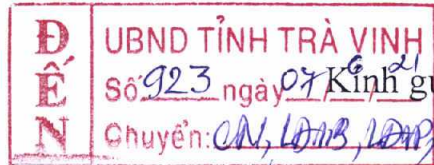 ĐẾN
UBND TỈNH TRÀ VINH
Số: 923 ngày 07/6/21 Kính gử
Chuyển: CN,